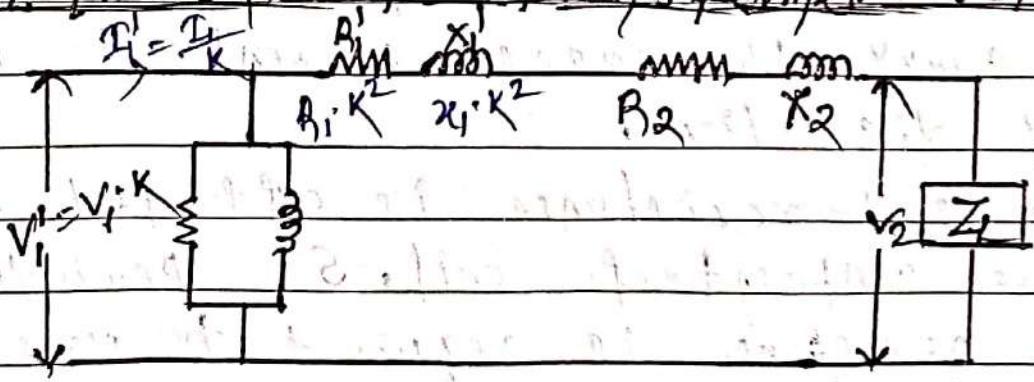 I₁' = I₁/K
R₁' X₁'
R₁·K² x₁·K² R₂ X₂
V₁' = V₁·K
V₂ Z_L